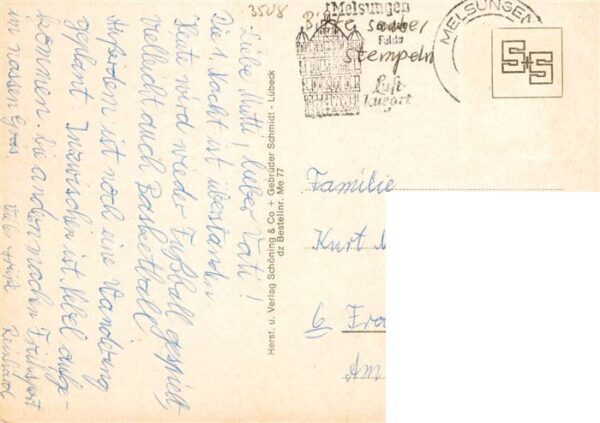 3508
Bitte sauber
stempeln
Melsungen
Fulda
Luft-
kurort
MELSUNGEN
S+S
Liebe Mutti, lieber Vati!
Die 1. Nacht ist überstanden.
Heute wird wieder Fußball gespielt,
vielleicht auch Basketball.
Außerdem ist noch eine Wanderung
geplant. Inzwischen ist Nebel aufge-
kommen. Die andern machen Frühsport
im nassen Gras
Viele Grüße Reinhard
Herst. u. Verlag Schöning & Co + Gebrüder Schmidt - Lübeck
dz Bestellnr. Me 77
Familie
Kurt
6 Fra
Am